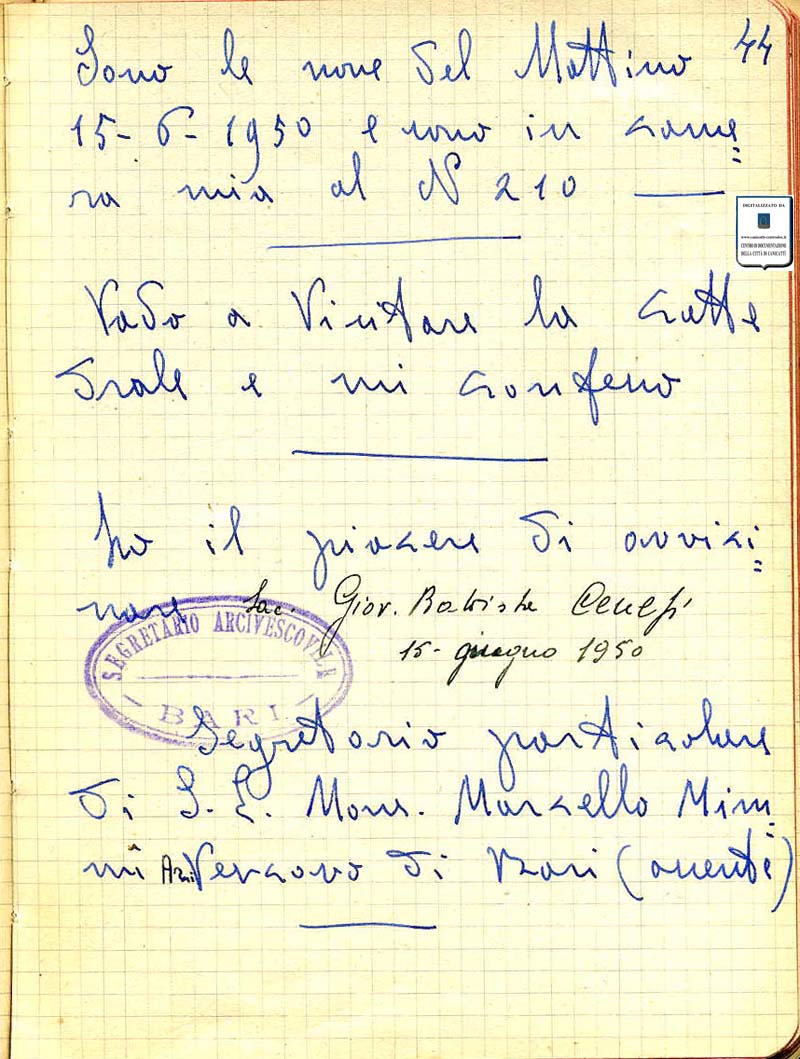 44
Sono le nove del Mattino
15-6-1950 e sono in came=
ra mia al N 210
DIGITALIZZATO DA
CENTRO DI DOCUMENTAZIONE
DELLA CITTÀ DI CANICATTÌ
Vado a Visitare la catte
drale e mi confesso
ho il piacere di avvici=
nare Sac. Giov. Battista
15- giugno 1950
SEGRETARIO ARCIVESCOVILE
BARI
Segretario particolare
di S. E. Mons. Marcello Mim=
mi Arcivescovo di Bari (assente)